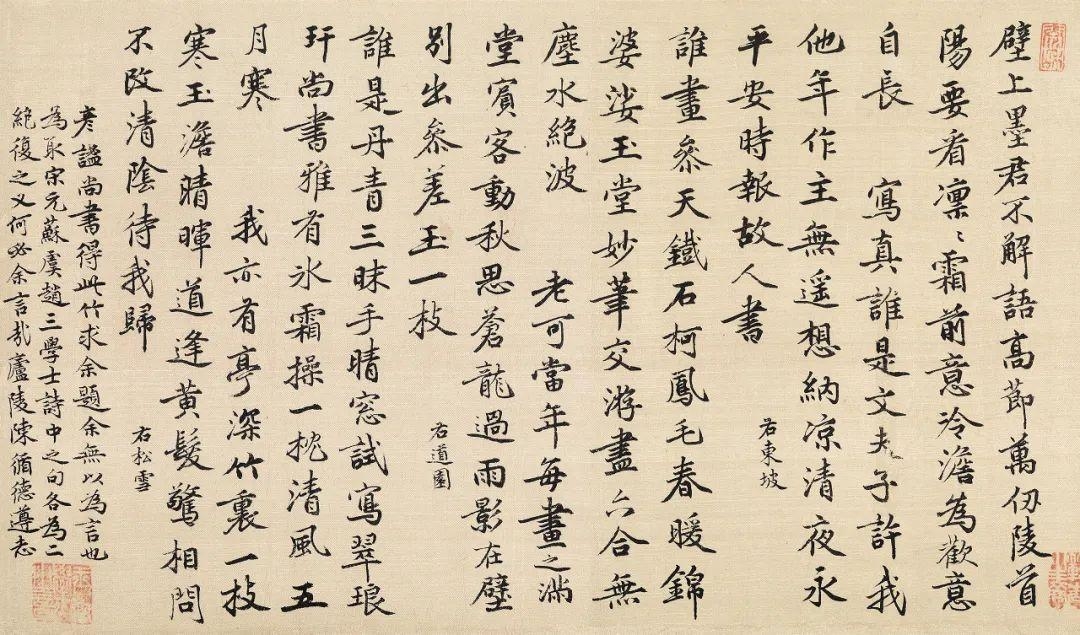 壁上墨君不解語高節萬仞陵首
陽要看凜〻霜前意冷澹為歡意
自長 寫真誰是文夫子許我
他年作主無遥想納凉清夜永
平安時報故人書
右東坡
誰畫叅天鐵石柯鳳毛春暖錦
婆娑玉堂妙筆交游盡六合無
塵水絕波 老可當年每畫之滿
堂賓客動秋思蒼龍過雨影在壁
别出叅差玉一枝
右道園
誰是丹青三昧手晴窓試寫翠琅
玕尚書雅有氷霜操一枕清風五
月寒 我亦有亭深竹裏一枝
寒玉澹晴暉道逢黄髮驚相問
不改清陰待我歸
右松雪
彦謐尚書得此竹求余題余無以為言也
為取宋元蘇虞趙三學士詩中之句各為二
絕復之又何必余言哉廬陵陳循德遵志